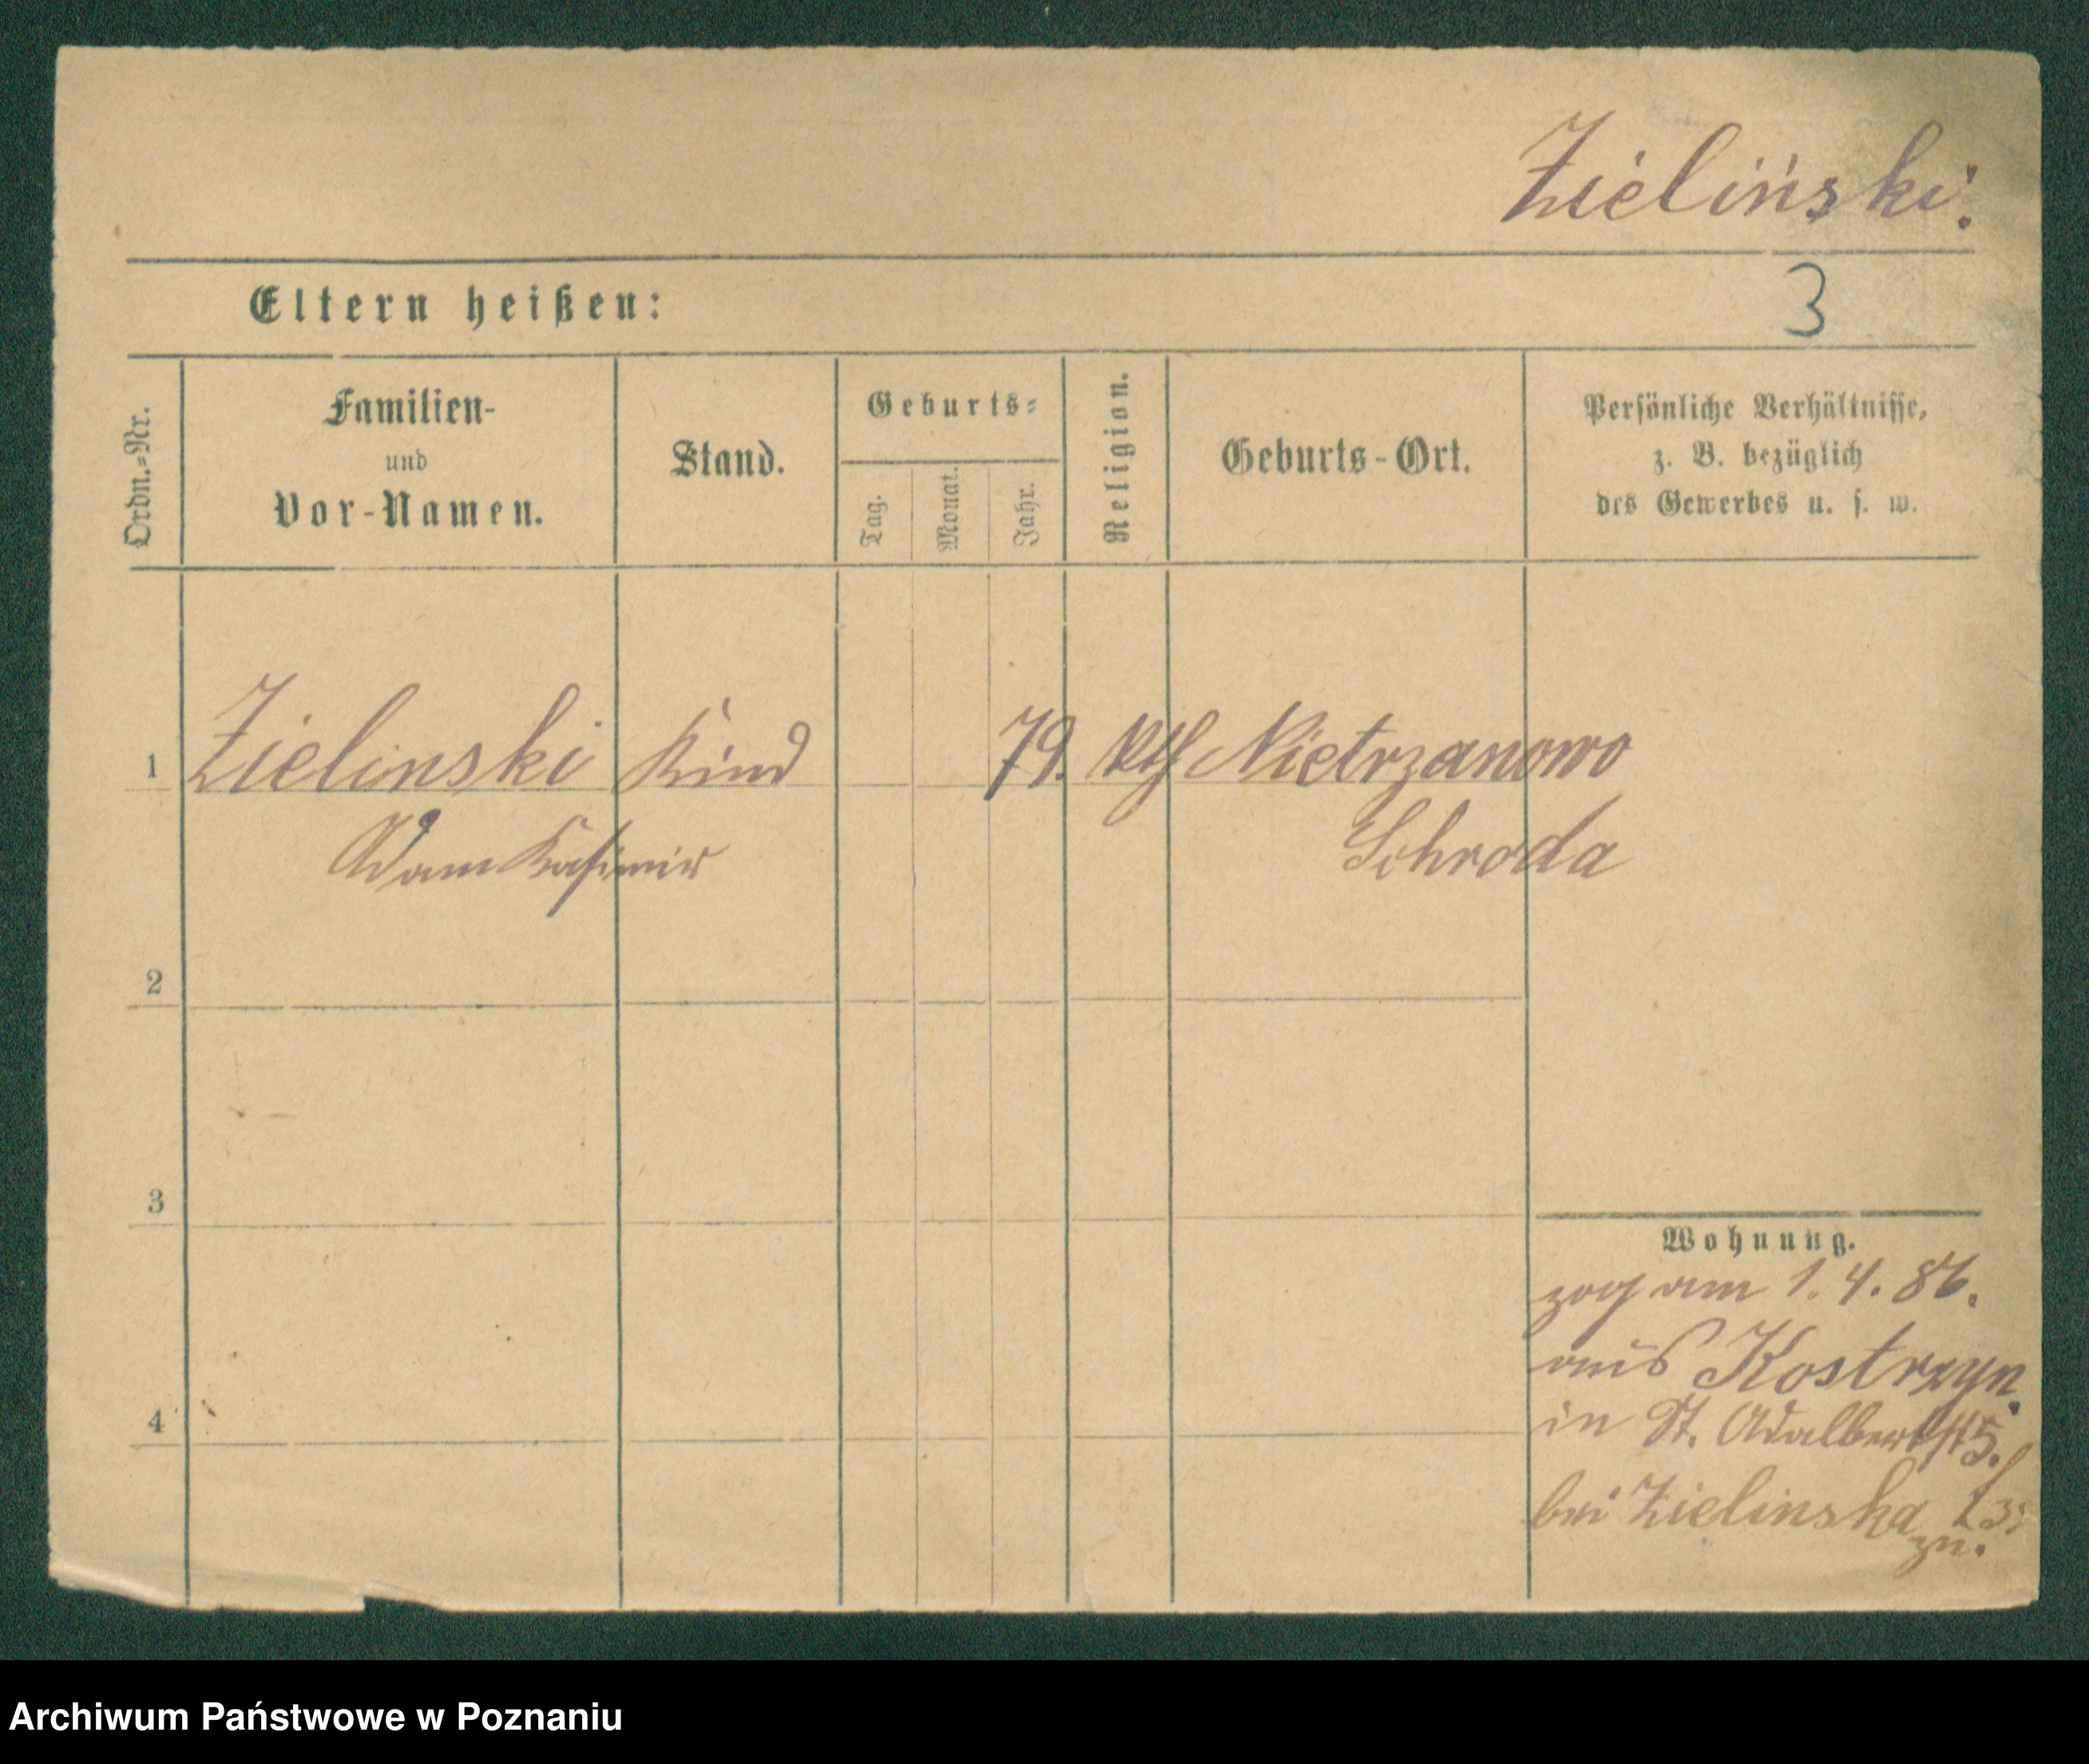 Zieliński.
Eltern heißen:
3
Ordn.=Nr.
Familien-
und
Vor-Namen.
Stand.
Geburts=
Tag.
Monat.
Jahr.
Religion.
Geburts-Ort.
Persönliche Verhältnisse,
z. B. bezüglich
des Gewerbes u. s. w.
1 Zielinski Kind 79. kth Nietrzanowo
Adam Kasimir Schroda
2
3
4
Wohnung.
zog am 1. 4. 86.
aus Kostrzyn.
in St. Adalbertst 5.
bei Zielinska
zu.
Archiwum Państwowe w Poznaniu